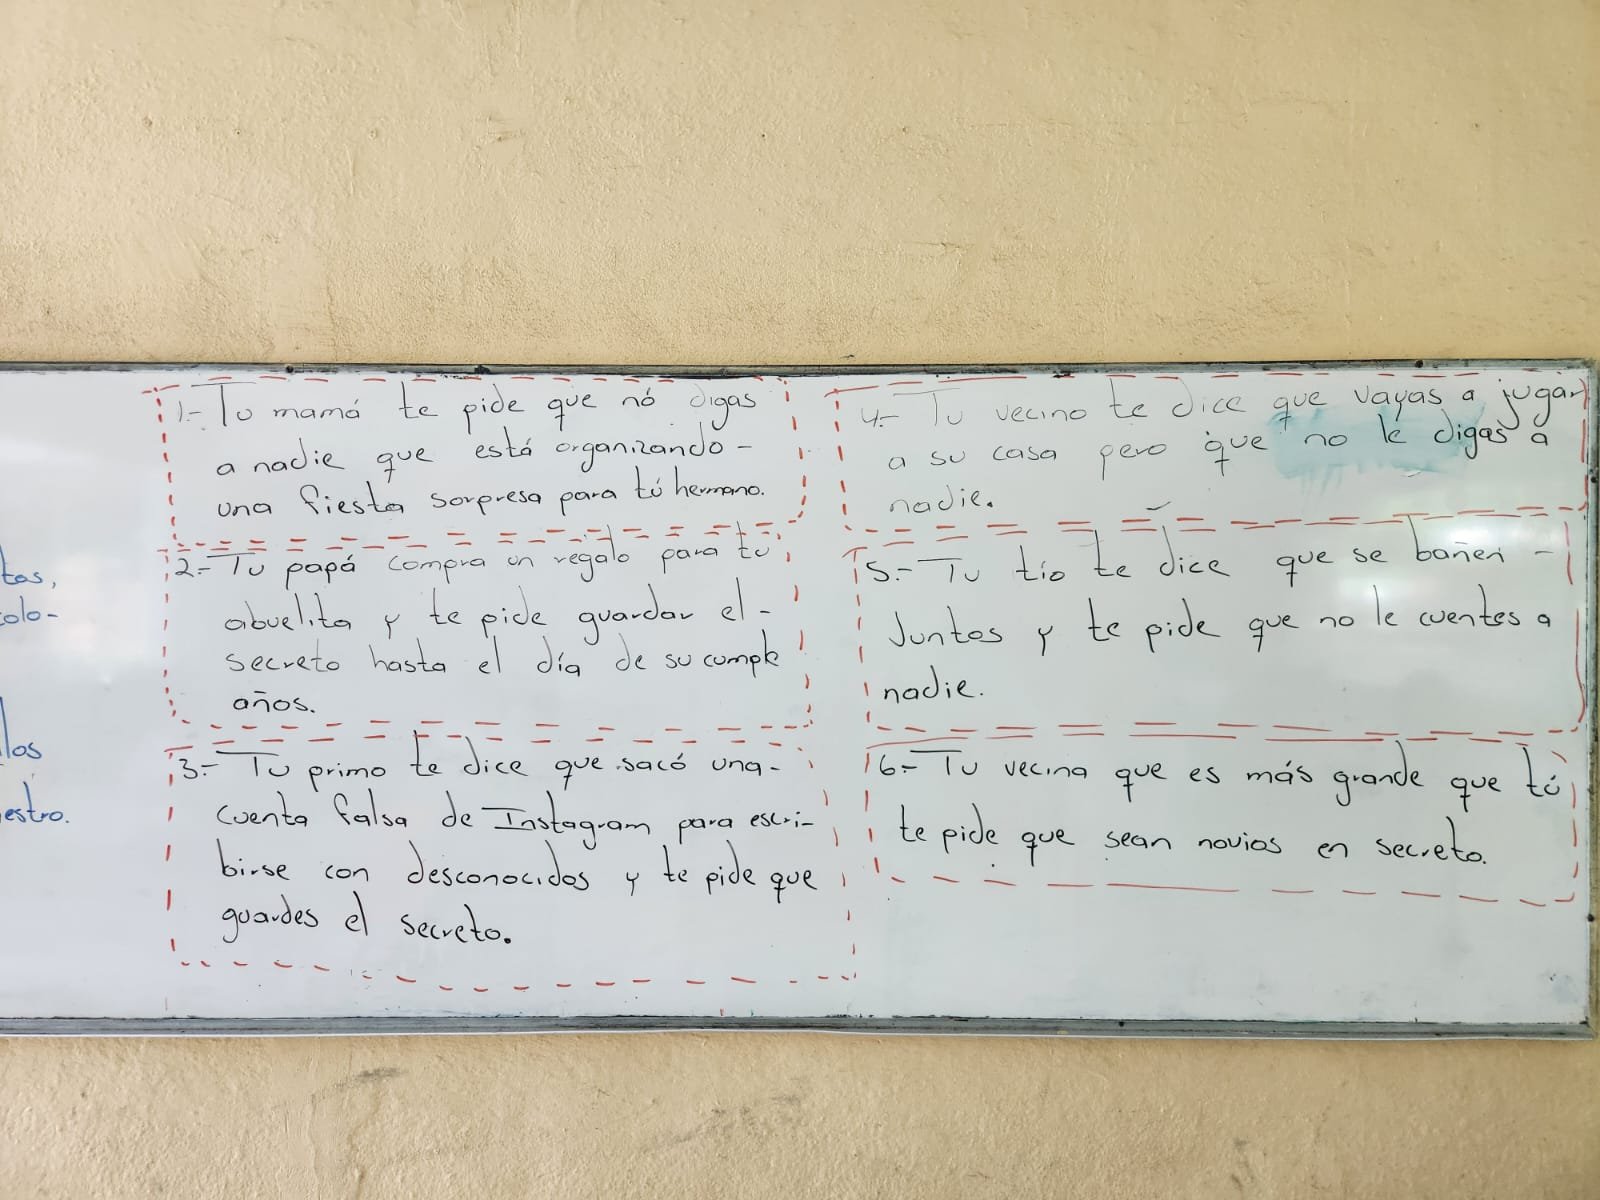 tas,
colo-
los
estro.
1.- Tu mamá te pide que nó digas
a nadie que está organizando -
una fiesta sorpresa para tú hermano.
2.- Tu papá compra un regalo para tu
abuelita y te pide guardar el -
secreto hasta el día de su cumple
años.
3.- Tu primo te dice que sacó una -
cuenta falsa de Instagram para escri-
birse con desconocidos y te pide que
guardes el secreto.
4.- Tu vecino te dice que vayas a jugar
a su casa pero que no le digas a
nadie.
5.- Tu tío te dice que se bañen -
Juntos y te pide que no le cuentes a
nadie.
6.- Tu vecina que es más grande que tú
te pide que sean novios en secreto.